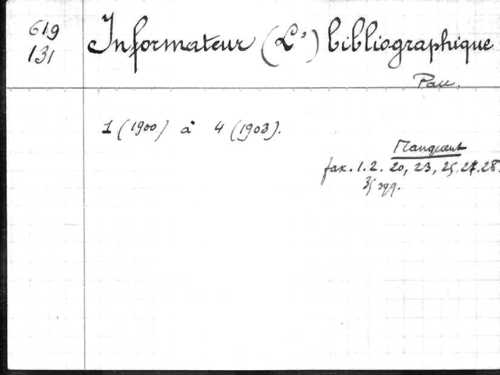 619
131
Informateur (L') bibliographique
Pau.
1 (1900) à 4 (1903).
Manquent
fax. 1. 2. 20, 23, 25, 27. 28.
31 sqq.